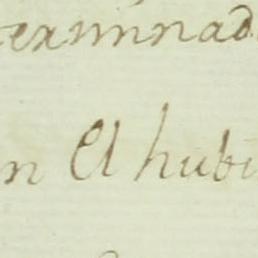 exsimnad
n El hubi